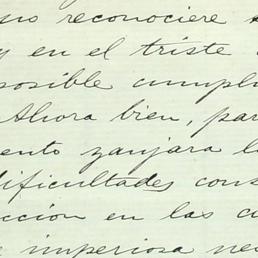 no reconociere
y en el triste
posible cumpl
Ahora bien, par
ento zanjara l
dificultades cons
cción en las c
e imperiosa nec